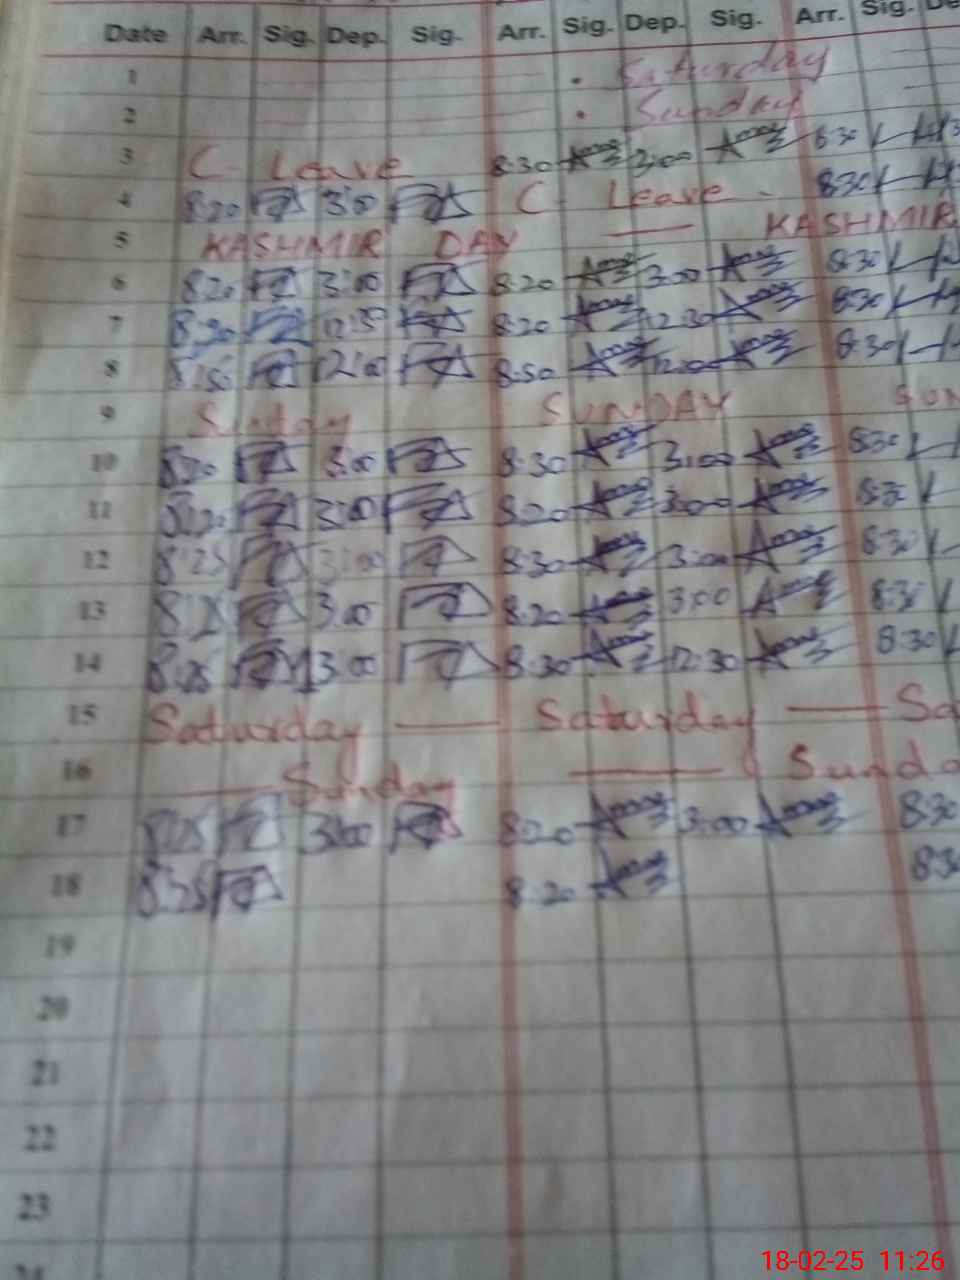 Date Arr. Sig. Dep. Sig. Arr. Sig. Dep. Sig. Arr. Sig. De
1 Saturday
2 Sunday
3 C- Leave 8:30 3:00 8:30
4 8:20 3:00 C- Leave - 8:30
5 KASHMIR DAY — KASHMIR
6 8:20 3:00 8:20 3:00 8:30
7 8:30 12:30 8:20 12:30 8:30
8 8:50 12:00 8:50 12:00 8:30
9 Sunday SUNDAY SUN
10 8:20 3:00 8:30 3:00 8:30
11 8:20 3:00 8:20 3:00 8:30
12 8:25 3:00 8:30 3:00 8:30
13 8:25 3:00 8:20 3:00 8:30
14 8:25 3:00 8:30 12:30 8:30
15 Saturday — Saturday — Sa
16 — Sunday — Sunda
17 8:25 3:00 8:20 3:00 8:30
18 8:25 8:20 8:30
19
20
21
22
23
24
18-02-25 11:26